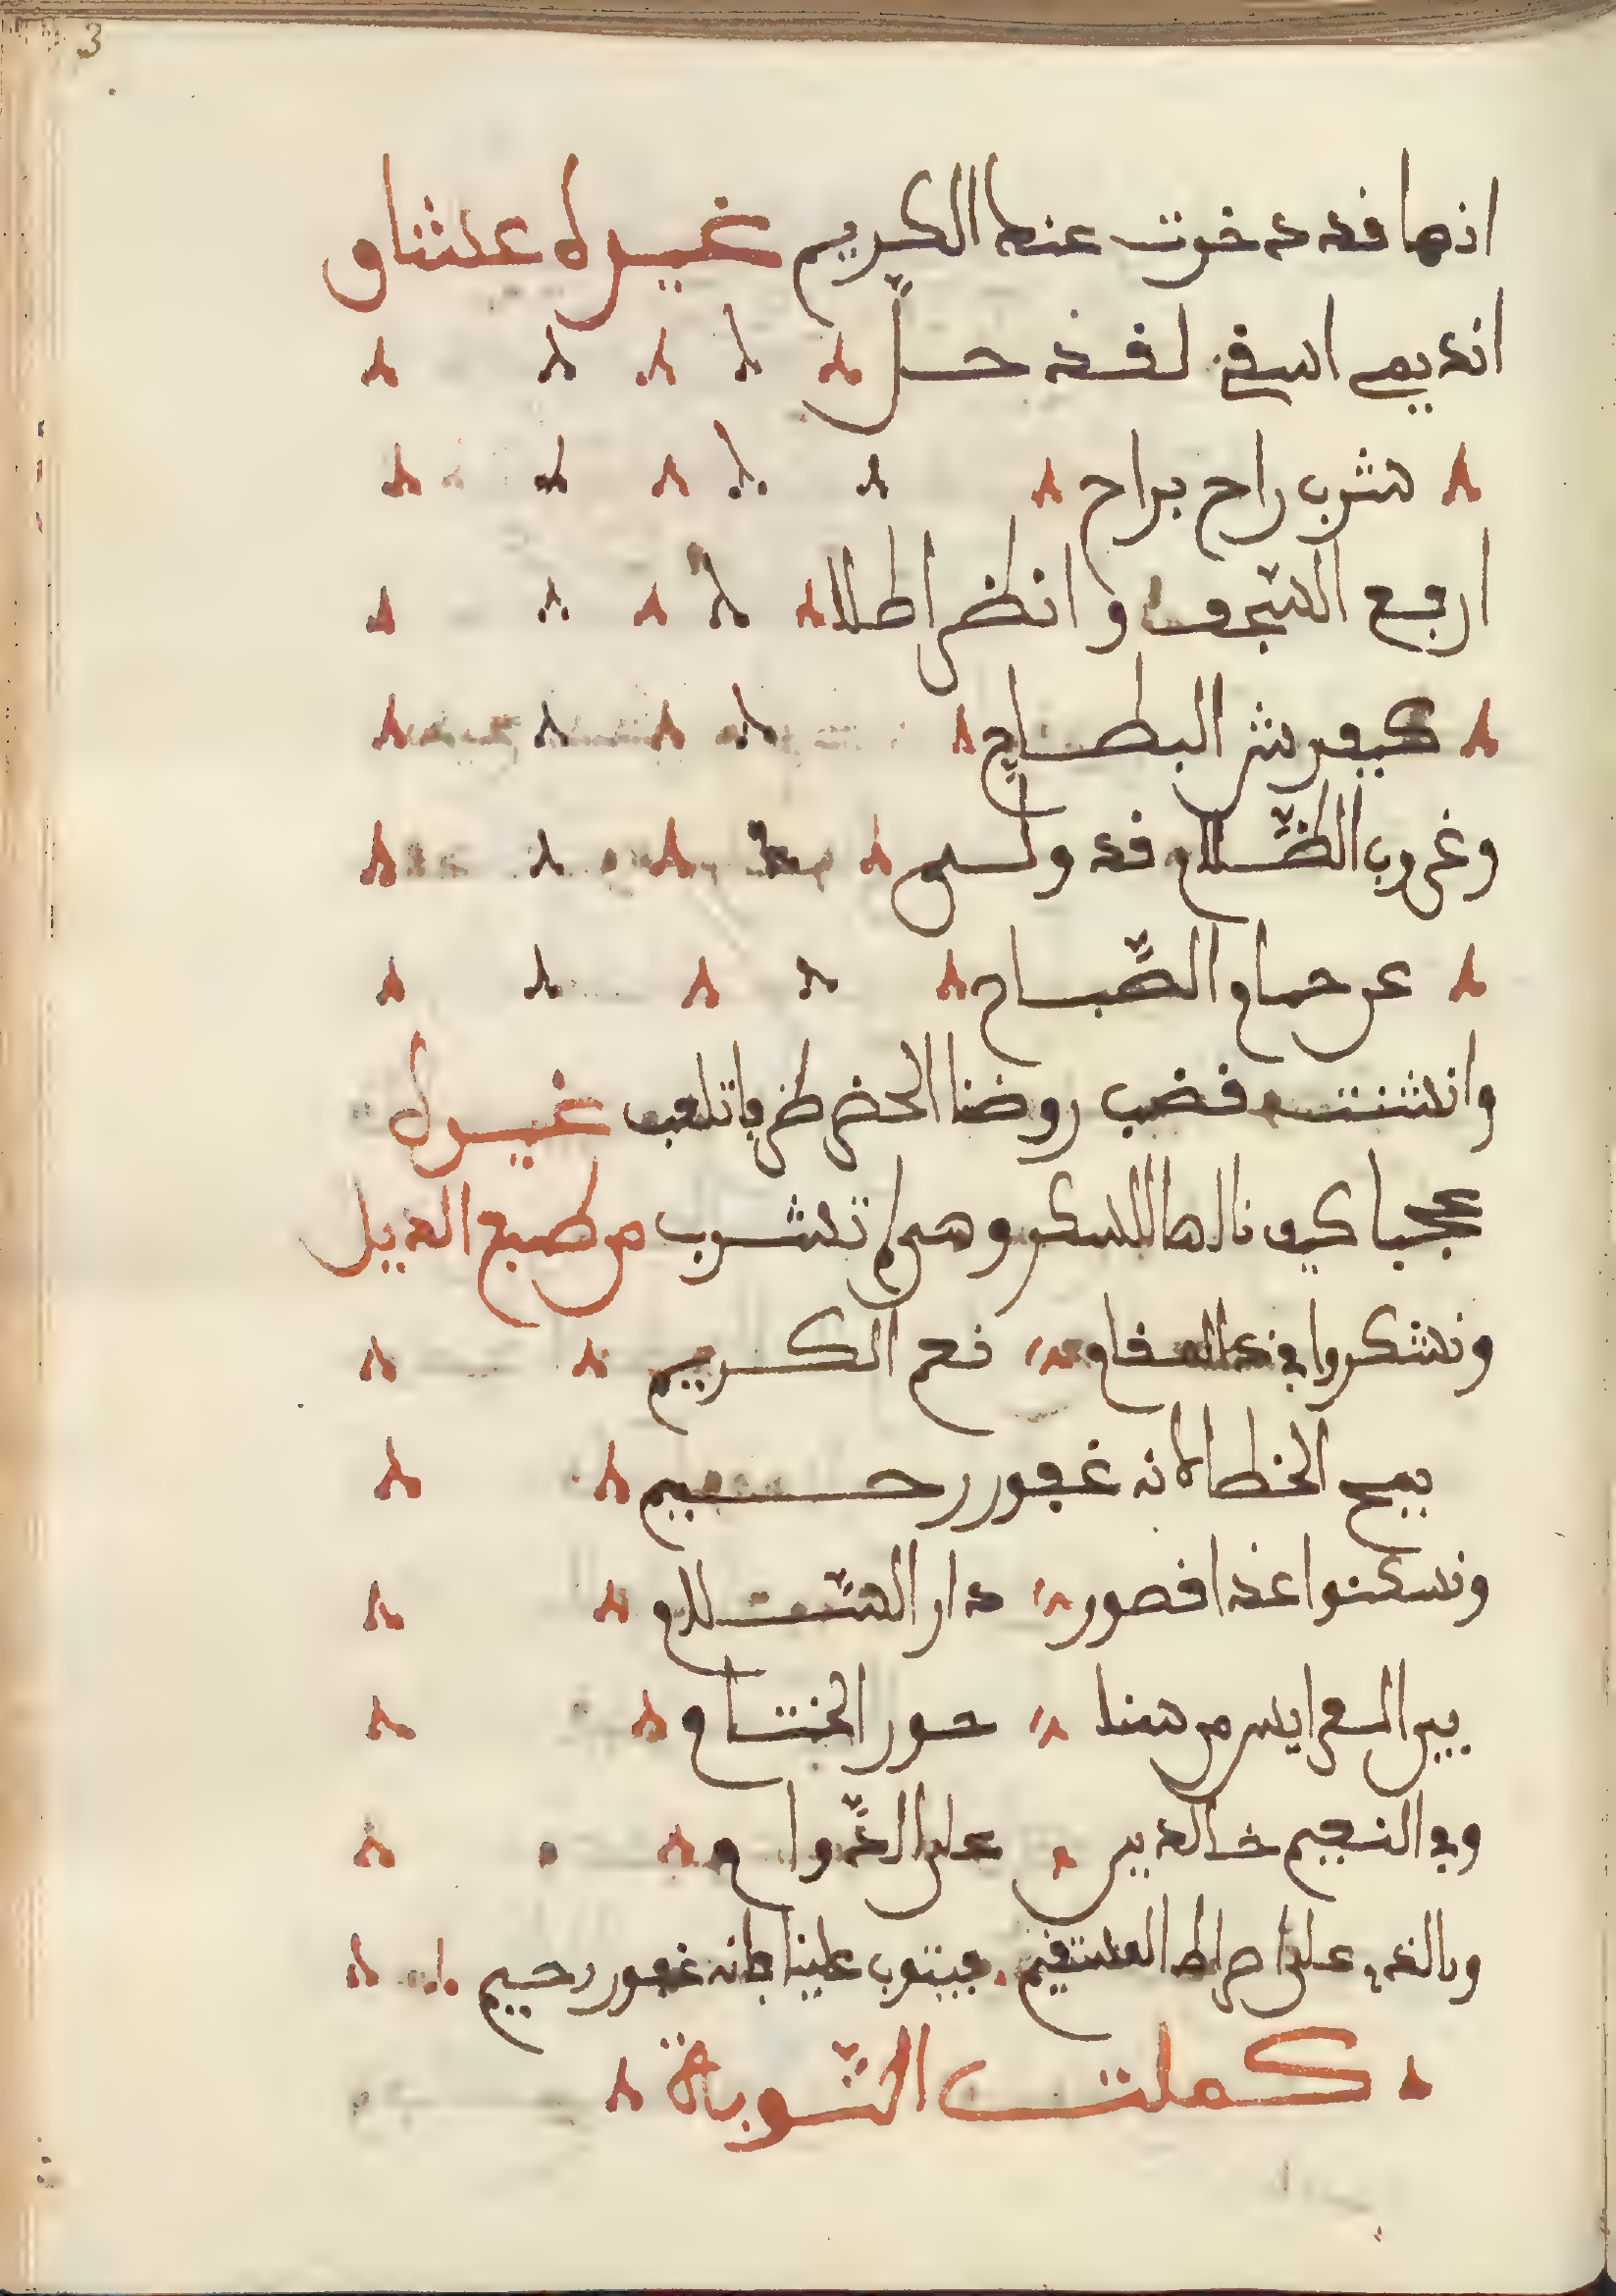 3
انها قد دخرت عند الكريم غيره عشاق
انديمي اسقي لقد حل
نشرب راح براح
ارفع السجف وانظر اطلا
كيف رش البطاح
وغروب الظلام قد ولى
عن حمام الصباح
وانثنت قضب روضنا الخضر طربا تلعب غيره
عجبا كيف نالها السكر وهي لم تشرب من طبع الذيل
ونشكروا في ذا المقام نعم الكريم
يمح الخطا لانه غفور رحيم
ونسكنوا غدا قصور دار السلام
بين العرايس من هنا حور الختام
وفي النعيم خالدين على الدوام
على صراط المستقيم فيتوب علينا فانه غفور رحيم
كملت التوبة